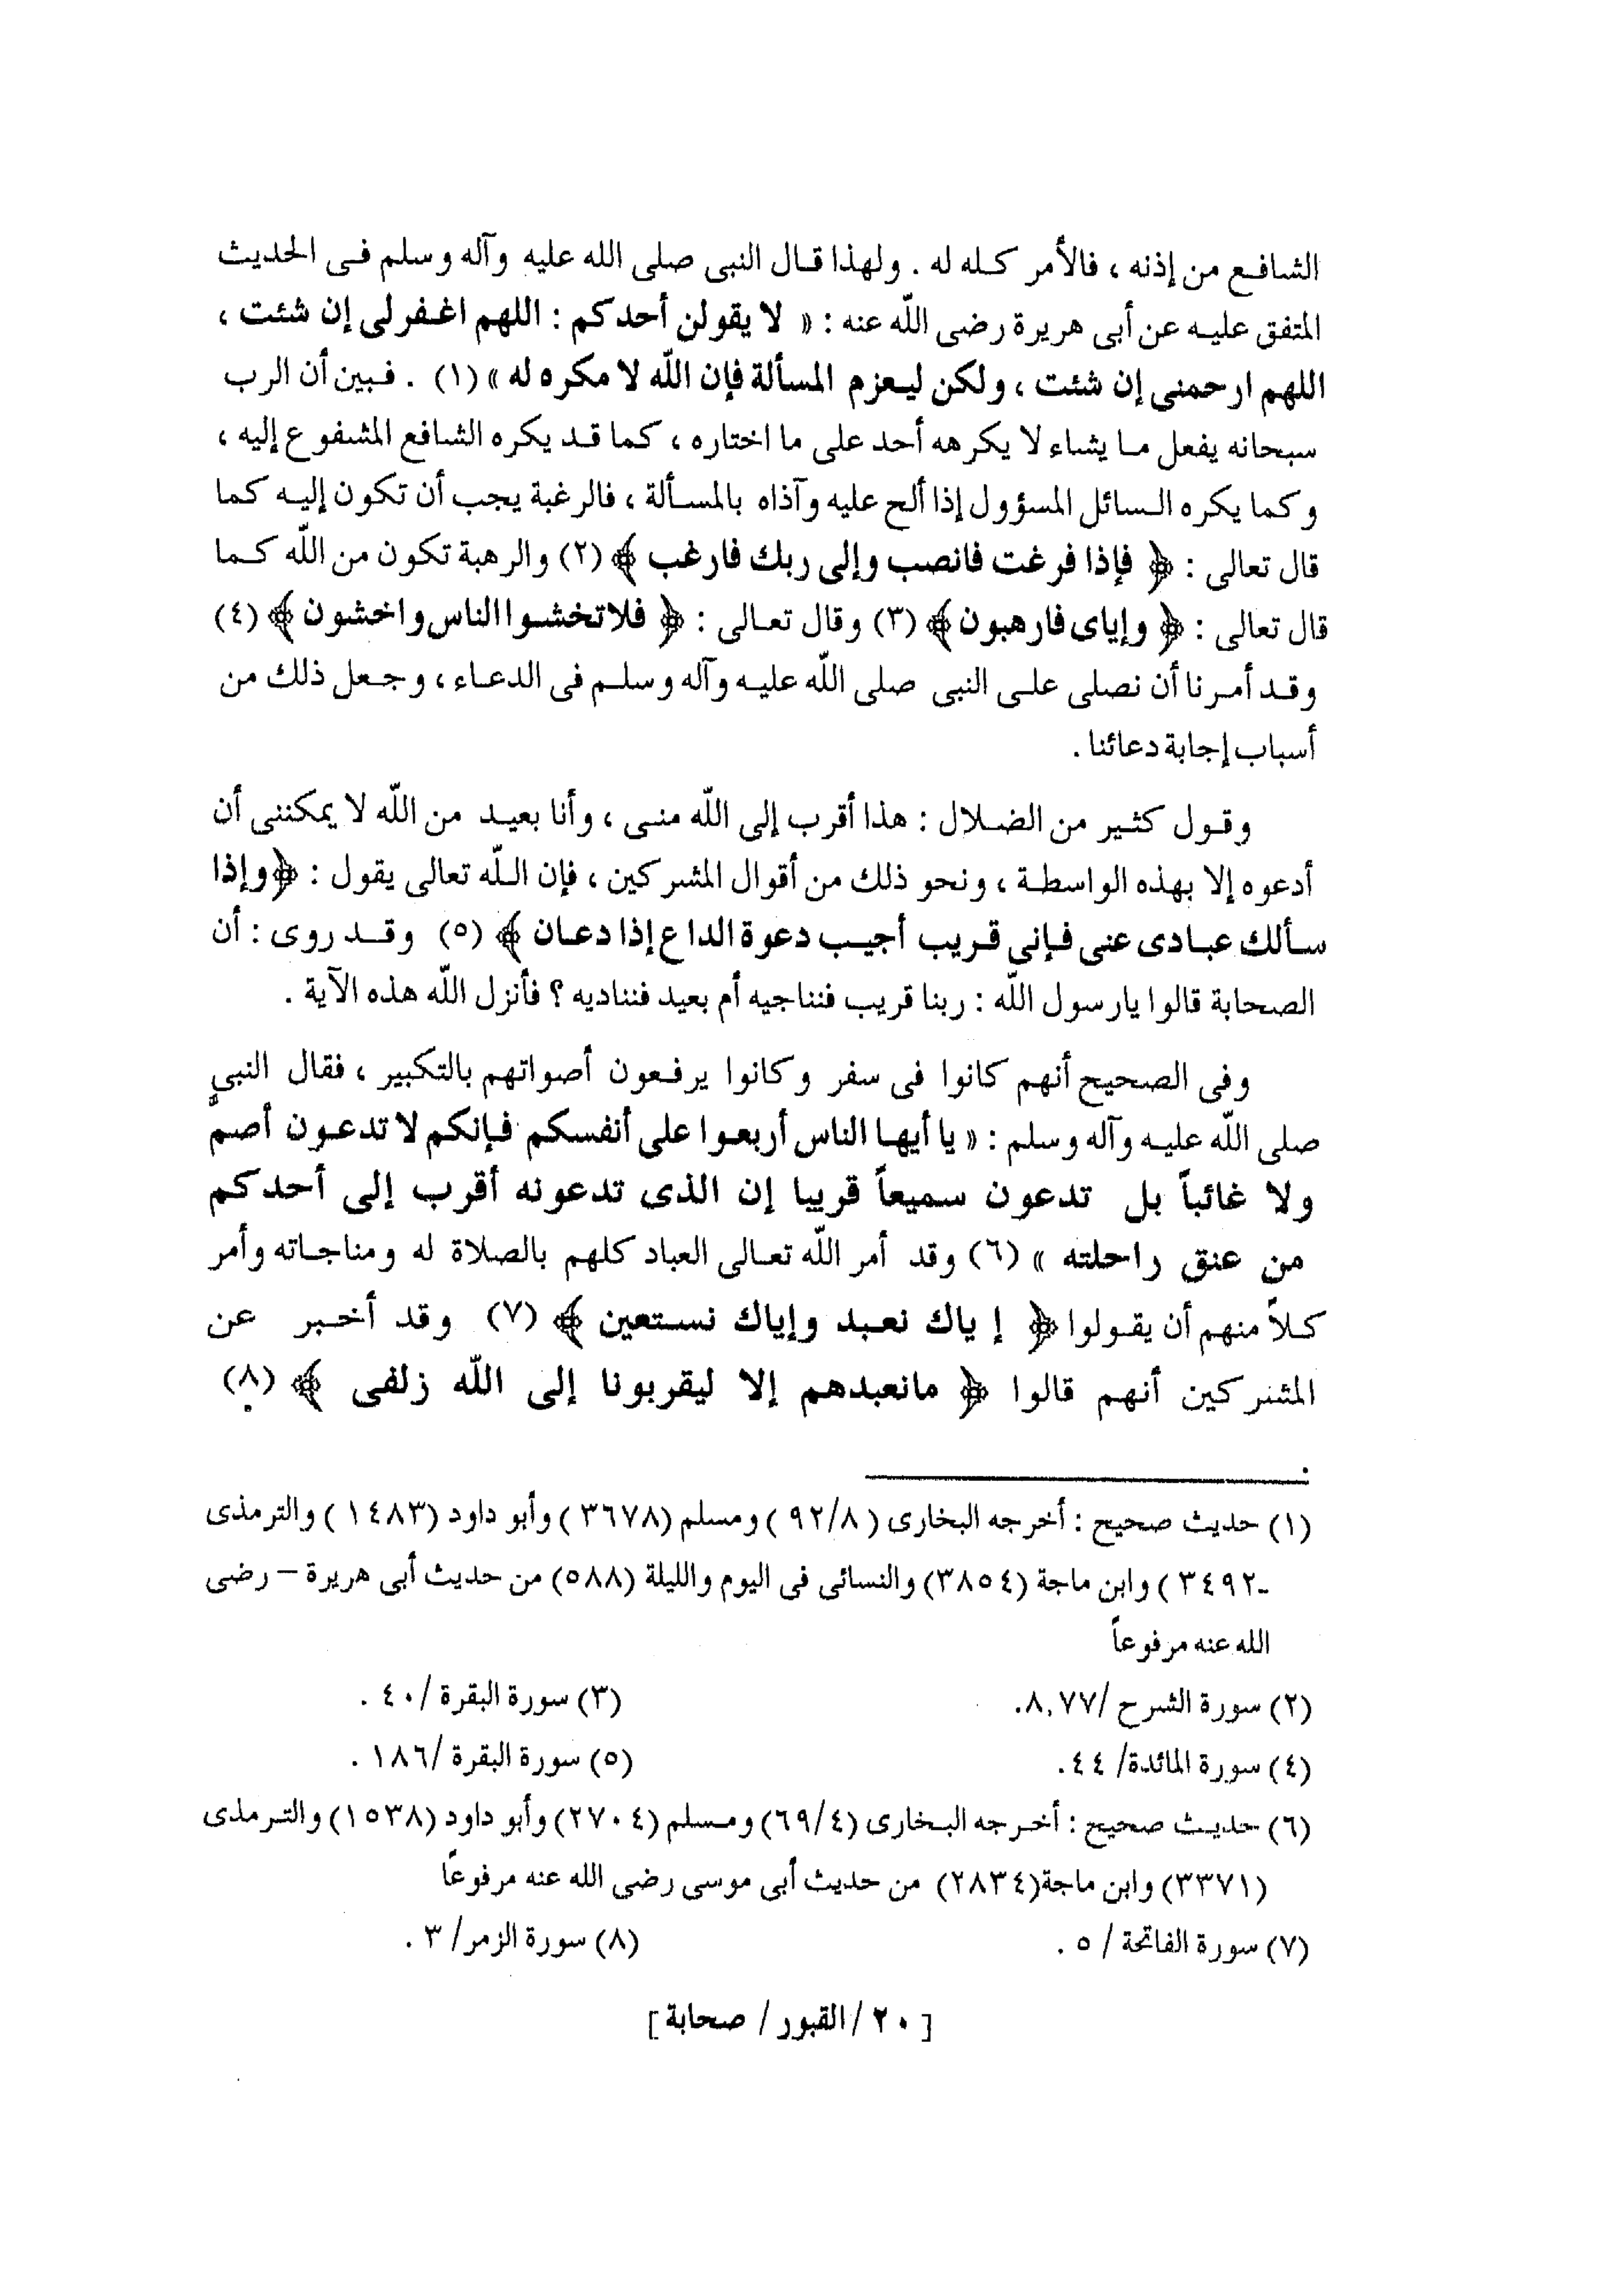 الشافع من إذنه ، فالأمر كله له . ولهذا قال النبى صلى الله عليه وآله وسلم فى الحديث
المتفق عليه عن أبى هريرة رضى الله عنه : « لا يقولن أحدكم : اللهم اغفرلى إن شئت ،
اللهم ارحمنى إن شئت ، ولكن ليعزم المسألة فإن الله لا مكره له » (١) . فبين أن الرب
سبحانه يفعل ما يشاء لا يكرهه أحد على ما اختاره ، كما قد يكره الشافع المشفوع إليه ،
وكما يكره السائل المسؤول إذا ألح عليه وآذاه بالمسألة ، فالرغبة يجب أن تكون إليه كما
قال تعالى : ﴿ فإذا فرغت فانصب وإلى ربك فارغب ﴾ (٢) والرهبة تكون من الله كما
قال تعالى : ﴿ وإياى فارهبون ﴾ (٣) وقال تعالى : ﴿ فلاتخشوا الناس واخشون ﴾ (٤)
وقد أمرنا أن نصلى على النبى صلى الله عليه وآله وسلم فى الدعاء ، وجعل ذلك من
أسباب إجابة دعائنا .
وقول كثير من الضلال : هذا أقرب إلى الله منى ، وأنا بعيد من الله لا يمكننى أن
أدعوه إلا بهذه الواسطة ، ونحو ذلك من أقوال المشركين ، فإن الله تعالى يقول : ﴿وإذا
سألك عبادى عنى فإنى قريب أجيب دعوة الداع إذا دعان ﴾ (٥) وقد روى : أن
الصحابة قالوا يارسول الله : ربنا قريب فنناجيه أم بعيد فنناديه ؟ فأنزل الله هذه الآية .
وفى الصحيح أنهم كانوا فى سفر وكانوا يرفعون أصواتهم بالتكبير ، فقال النبي
صلى الله عليه وآله وسلم : « يا أيها الناس أربعوا على أنفسكم فإنكم لا تدعون أصم
ولا غائباً بل تدعون سميعاً قريبا إن الذى تدعونه أقرب إلى أحدكم
من عنق راحلته » (٦) وقد أمر الله تعالى العباد كلهم بالصلاة له ومناجاته وأمر
كلاً منهم أن يقولوا ﴿ إياك نعبد وإياك نستعين ﴾ (٧) وقد أخبر عن
المشركين أنهم قالوا ﴿ مانعبدهم إلا ليقربونا إلى الله زلفى ﴾ (٨) .
(١) حديث صحيح : أخرجه البخارى ( ٩٢/٨ ) ومسلم (٣٦٧٨ ) وأبو داود (١٤٨٣ ) والترمذى
-٣٤٩٢ ) وابن ماجة (٣٨٥٤) والنسائى فى اليوم والليلة (٥٨٨) من حديث أبى هريرة – رضى
الله عنه مرفوعاً
(٢) سورة الشرح /٨,٧٧.
(٣) سورة البقرة /٤٠ .
(٤) سورة المائدة/ ٤٤.
(٥) سورة البقرة /١٨٦ .
(٦) حديث صحيح : أخرجه البخارى (٦٩/٤) ومسلم (٢٧٠٤) وأبو داود (١٥٣٨) والترمذى
(٣٣٧١) وابن ماجة(٢٨٣٤) من حديث أبى موسى رضى الله عنه مرفوعاً
(٧) سورة الفاتحة / ٥ .
(٨) سورة الزمر/ ٣ .
[ ٢٠ /القبور / صحابة ]